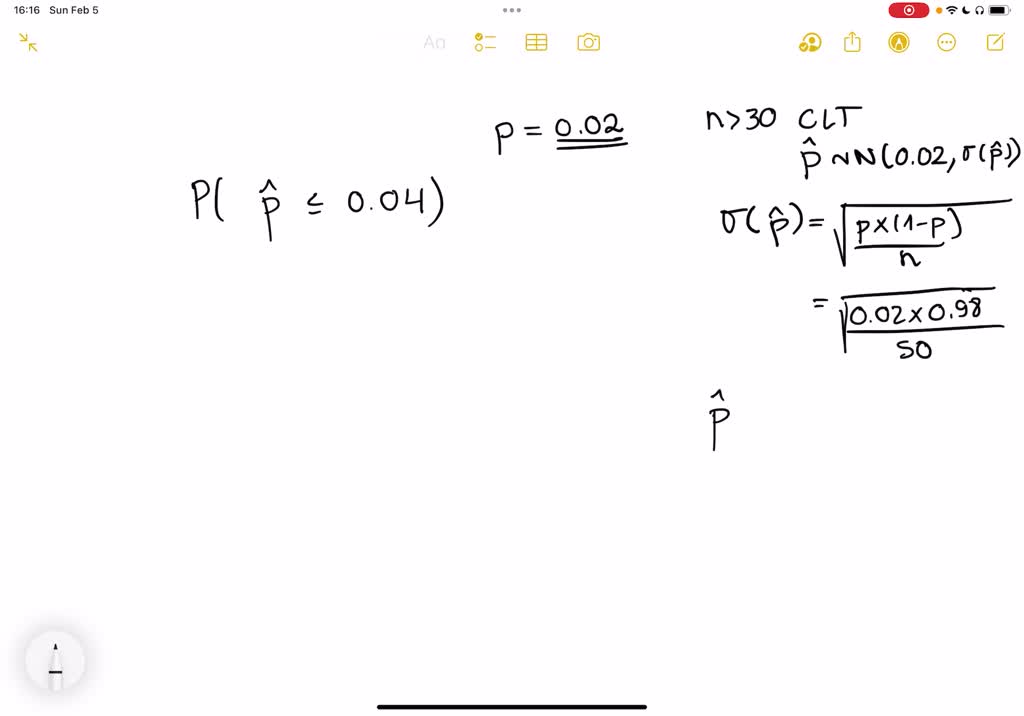 16:16 Sun Feb 5
Aa
p = 0.02
n>30 CLT
p̂ ~N(0.02, σ(p̂))
P( p̂ ≤ 0.04)
σ(p̂) = √(p×(1-p)/n)
= √(0.02×0.98/50)
p̂